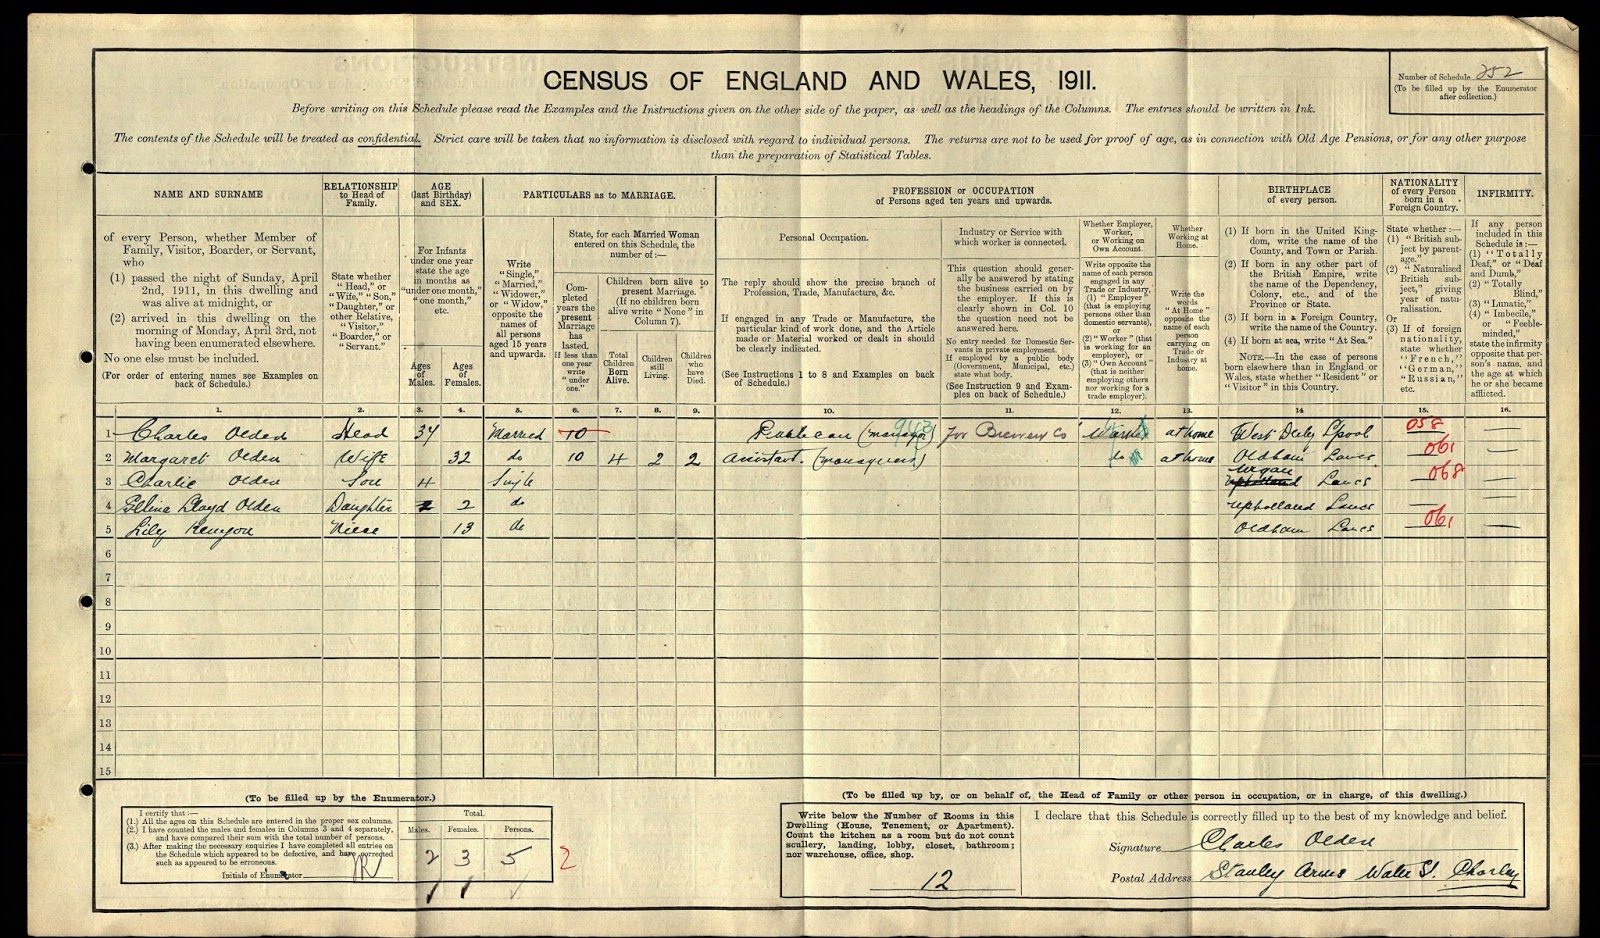 CENSUS OF ENGLAND AND WALES, 1911.
Number of Schedule 252
(To be filled up by the Enumerator
after collection.)
Before writing on this Schedule please read the Examples and the Instructions given on the other side of the paper, as well as the headings of the Columns. The entries should be written in Ink.
The contents of the Schedule will be treated as confidential. Strict care will be taken that no information is disclosed with regard to individual persons. The returns are not to be used for proof of age, as in connection with Old Age Pensions, or for any other purpose
than the preparation of Statistical Tables.
NAME AND SURNAME
of every Person, whether Member of
Family, Visitor, Boarder, or Servant,
who
(1) passed the night of Sunday, April
2nd, 1911, in this dwelling and
was alive at midnight, or
(2) arrived in this dwelling on the
morning of Monday, April 3rd, not
having been enumerated elsewhere.
No one else must be included.
(For order of entering names see Examples on
back of Schedule.)
RELATIONSHIP
to Head of
Family.
State whether
"Head," or
"Wife," "Son,"
"Daughter," or
other Relative,
"Visitor,"
"Boarder," or
"Servant."
AGE
(last Birthday)
and SEX.
For Infants
under one year
state the age
in months as
"under one month,"
"one month,"
etc.
Ages
of
Males.
Ages
of
Females.
PARTICULARS as to MARRIAGE.
Write
"Single,"
"Married,"
"Widower,"
or "Widow,"
opposite the
names of
all persons
aged 15 years
and upwards.
State, for each Married Woman
entered on this Schedule, the
number of:—
Com-
pleted
years the
present
Marriage
has
lasted.
If less than
one year
write
"under
one."
Children born alive to
present Marriage.
(If no children born
alive write "None" in
Column 7).
Total
Children
Born
Alive.
Children
still
Living.
Children
who
have
Died.
PROFESSION or OCCUPATION
of Persons aged ten years and upwards.
Personal Occupation.
The reply should show the precise branch of
Profession, Trade, Manufacture, &c.
If engaged in any Trade or Manufacture, the
particular kind of work done, and the Article
made or Material worked or dealt in should
be clearly indicated.
(See Instructions 1 to 8 and Examples on back
of Schedule.)
Industry or Service with
which worker is connected.
This question should gener-
ally be answered by stating
the business carried on by
the employer. If this is
clearly shown in Col. 10
the question need not be
answered here.
No entry needed for Domestic Ser-
vants in private employment.
If employed by a public body
(Government, Municipal, etc.)
state what body.
(See Instruction 9 and Exam-
ples on back of Schedule.)
Whether Employer,
Worker,
or Working on
Own Account.
Write opposite the
name of each person
engaged in any
Trade or Industry,
(1) "Employer"
(that is employing
persons other than
domestic servants),
or
(2) "Worker" (that
is working for an
employer), or
(3) "Own Account"
(that is neither
employing others
nor working for a
trade employer).
Whether
Working at
Home.
Write the
words
"At Home"
opposite the
name of each
person
carrying on
Trade or
Industry at
home.
BIRTHPLACE
of every person.
(1) If born in the United King-
dom, write the name of the
County, and Town or Parish.
(2) If born in any other part of
the British Empire, write
the name of the Dependency,
Colony, etc., and of the
Province or State.
(3) If born in a Foreign Country,
write the name of the Country.
(4) If born at sea, write "At Sea."
NOTE.—In the case of persons
born elsewhere than in England or
Wales, state whether "Resident" or
"Visitor" in this Country.
NATIONALITY
of every Person
born in a
Foreign Country.
State whether:—
(1) "British sub-
ject by parent-
age."
(2) "Naturalised
British sub-
ject," giving
year of natu-
ralisation.
Or
(3) If of foreign
nationality,
state whether
"French,"
"German,"
"Russian,"
etc.
INFIRMITY.
If any person
included in this
Schedule is:—
(1) "Totally
Deaf," or "Deaf
and Dumb,"
(2) "Totally
Blind,"
(3) "Lunatic,"
(4) "Imbecile,"
or "Feeble-
minded,"
state the infirmity
opposite that per-
son's name, and
the age at which
he or she became
afflicted.
1. 2. 3. 4. 5. 6. 7. 8. 9. 10. 11. 12. 13. 14 15. 16.
1 Charles Olden Head 34 Married 10 Publican (manager) 943 for Brewery Co Worker at home West Derby Lpool 058 —
2 Margaret Olden Wife 32 do 10 4 2 2 Assistant. (manageress) do at home Oldham Lancs 061 —
3 Charlie Olden Son 4 Single Wigan Upholland Lancs 068 —
4 Lloyd Olden Daughter 2 do Upholland Lancs —
5 Lily Kenyon Niece 13 do Oldham Lancs 061 —
6
7
8
9
10
11
12
13
14
15
(To be filled up by the Enumerator.)
I certify that:—
(1.) All the ages on this Schedule are entered in the proper sex columns.
(2.) I have counted the males and females in Columns 3 and 4 separately,
and have compared their sum with the total number of persons.
(3.) After making the necessary enquiries I have completed all entries on
the Schedule which appeared to be defective, and have corrected
such as appeared to be erroneous.
Initials of Enumerator
Total.
Males. Females. Persons.
2 3 5 2
(To be filled up by, or on behalf of, the Head of Family or other person in occupation, or in charge, of this dwelling.)
Write below the Number of Rooms in this
Dwelling (House, Tenement, or Apartment).
Count the kitchen as a room but do not count
scullery, landing, lobby, closet, bathroom;
nor warehouse, office, shop.
12
I declare that this Schedule is correctly filled up to the best of my knowledge and belief.
Signature Charles Olden
Postal Address Stanley Arms Water St. Chorley